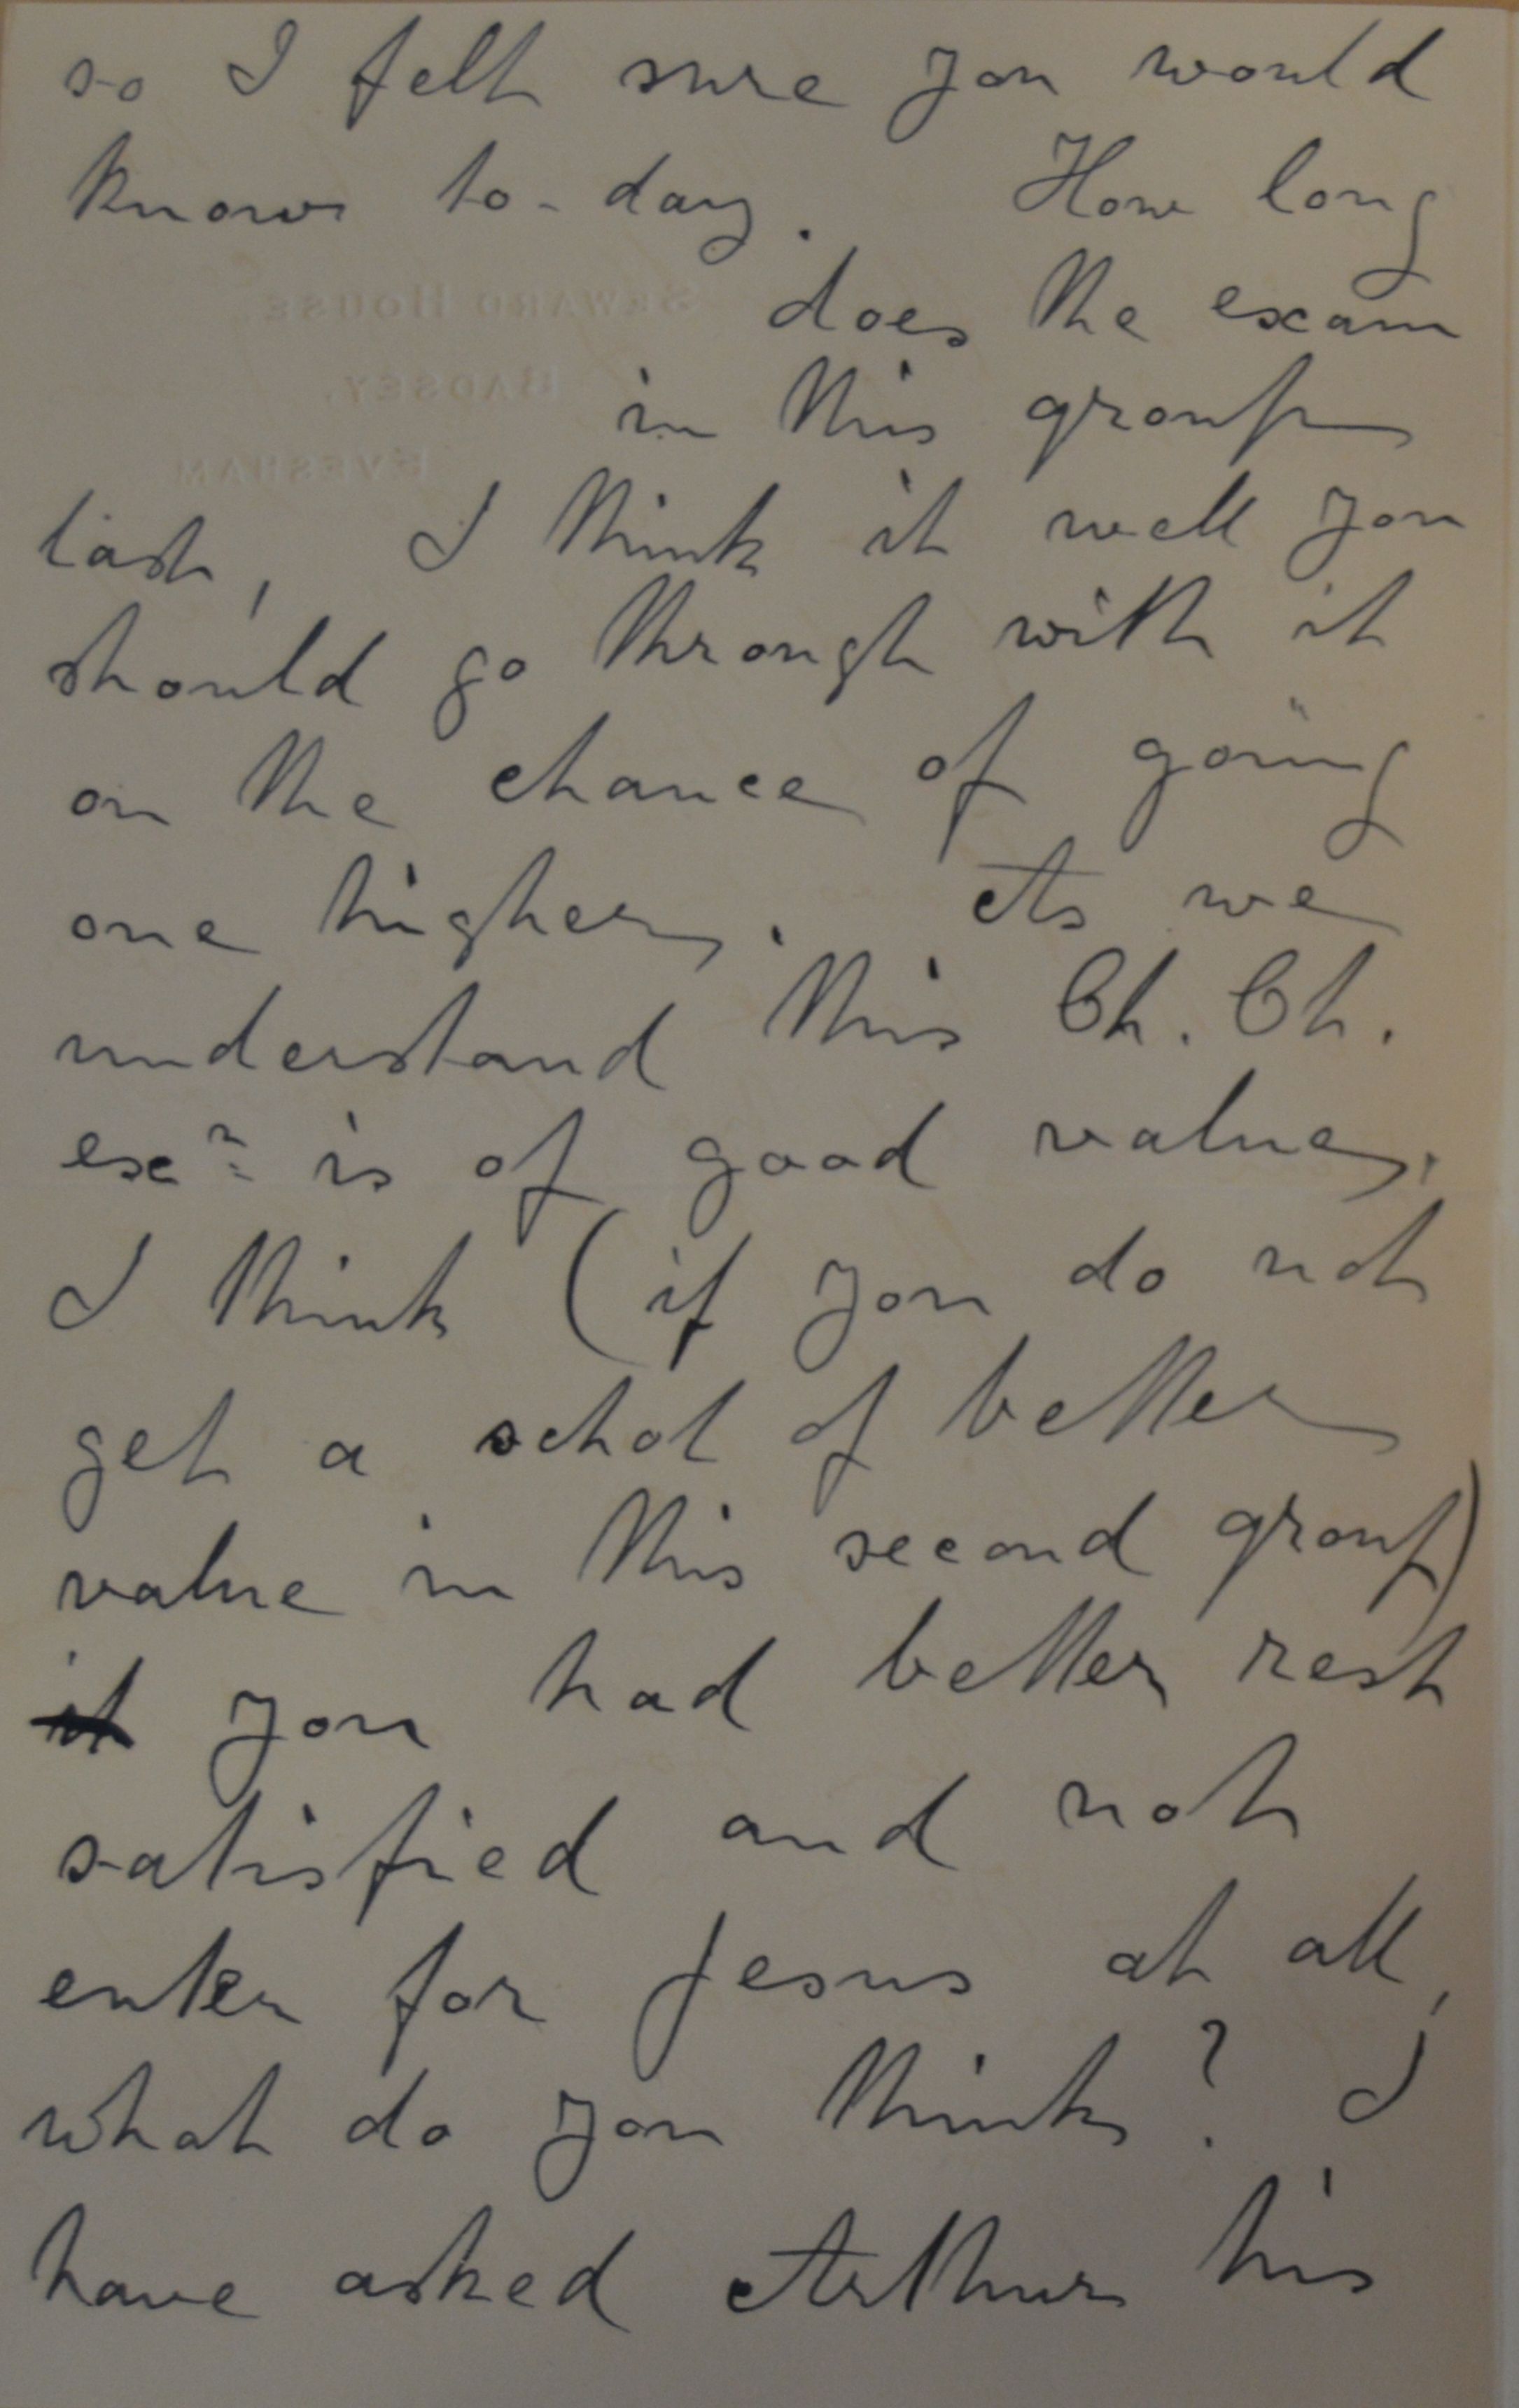 so I felt sure you would
know to-day. How long
SEWARD HOUSE,
does the exam
BADSEY,
in this group
EVESHAM
last, I think it well you
should go through with it
on the chance of going
one higher. As we
understand this Ch. Ch.
exn is of good value.
I think (if you do not
get a schol of better
value in this second group)
it you had better rest
satisfied and not
enter for Jesus at all,
what do you think? I
have asked Arthur his